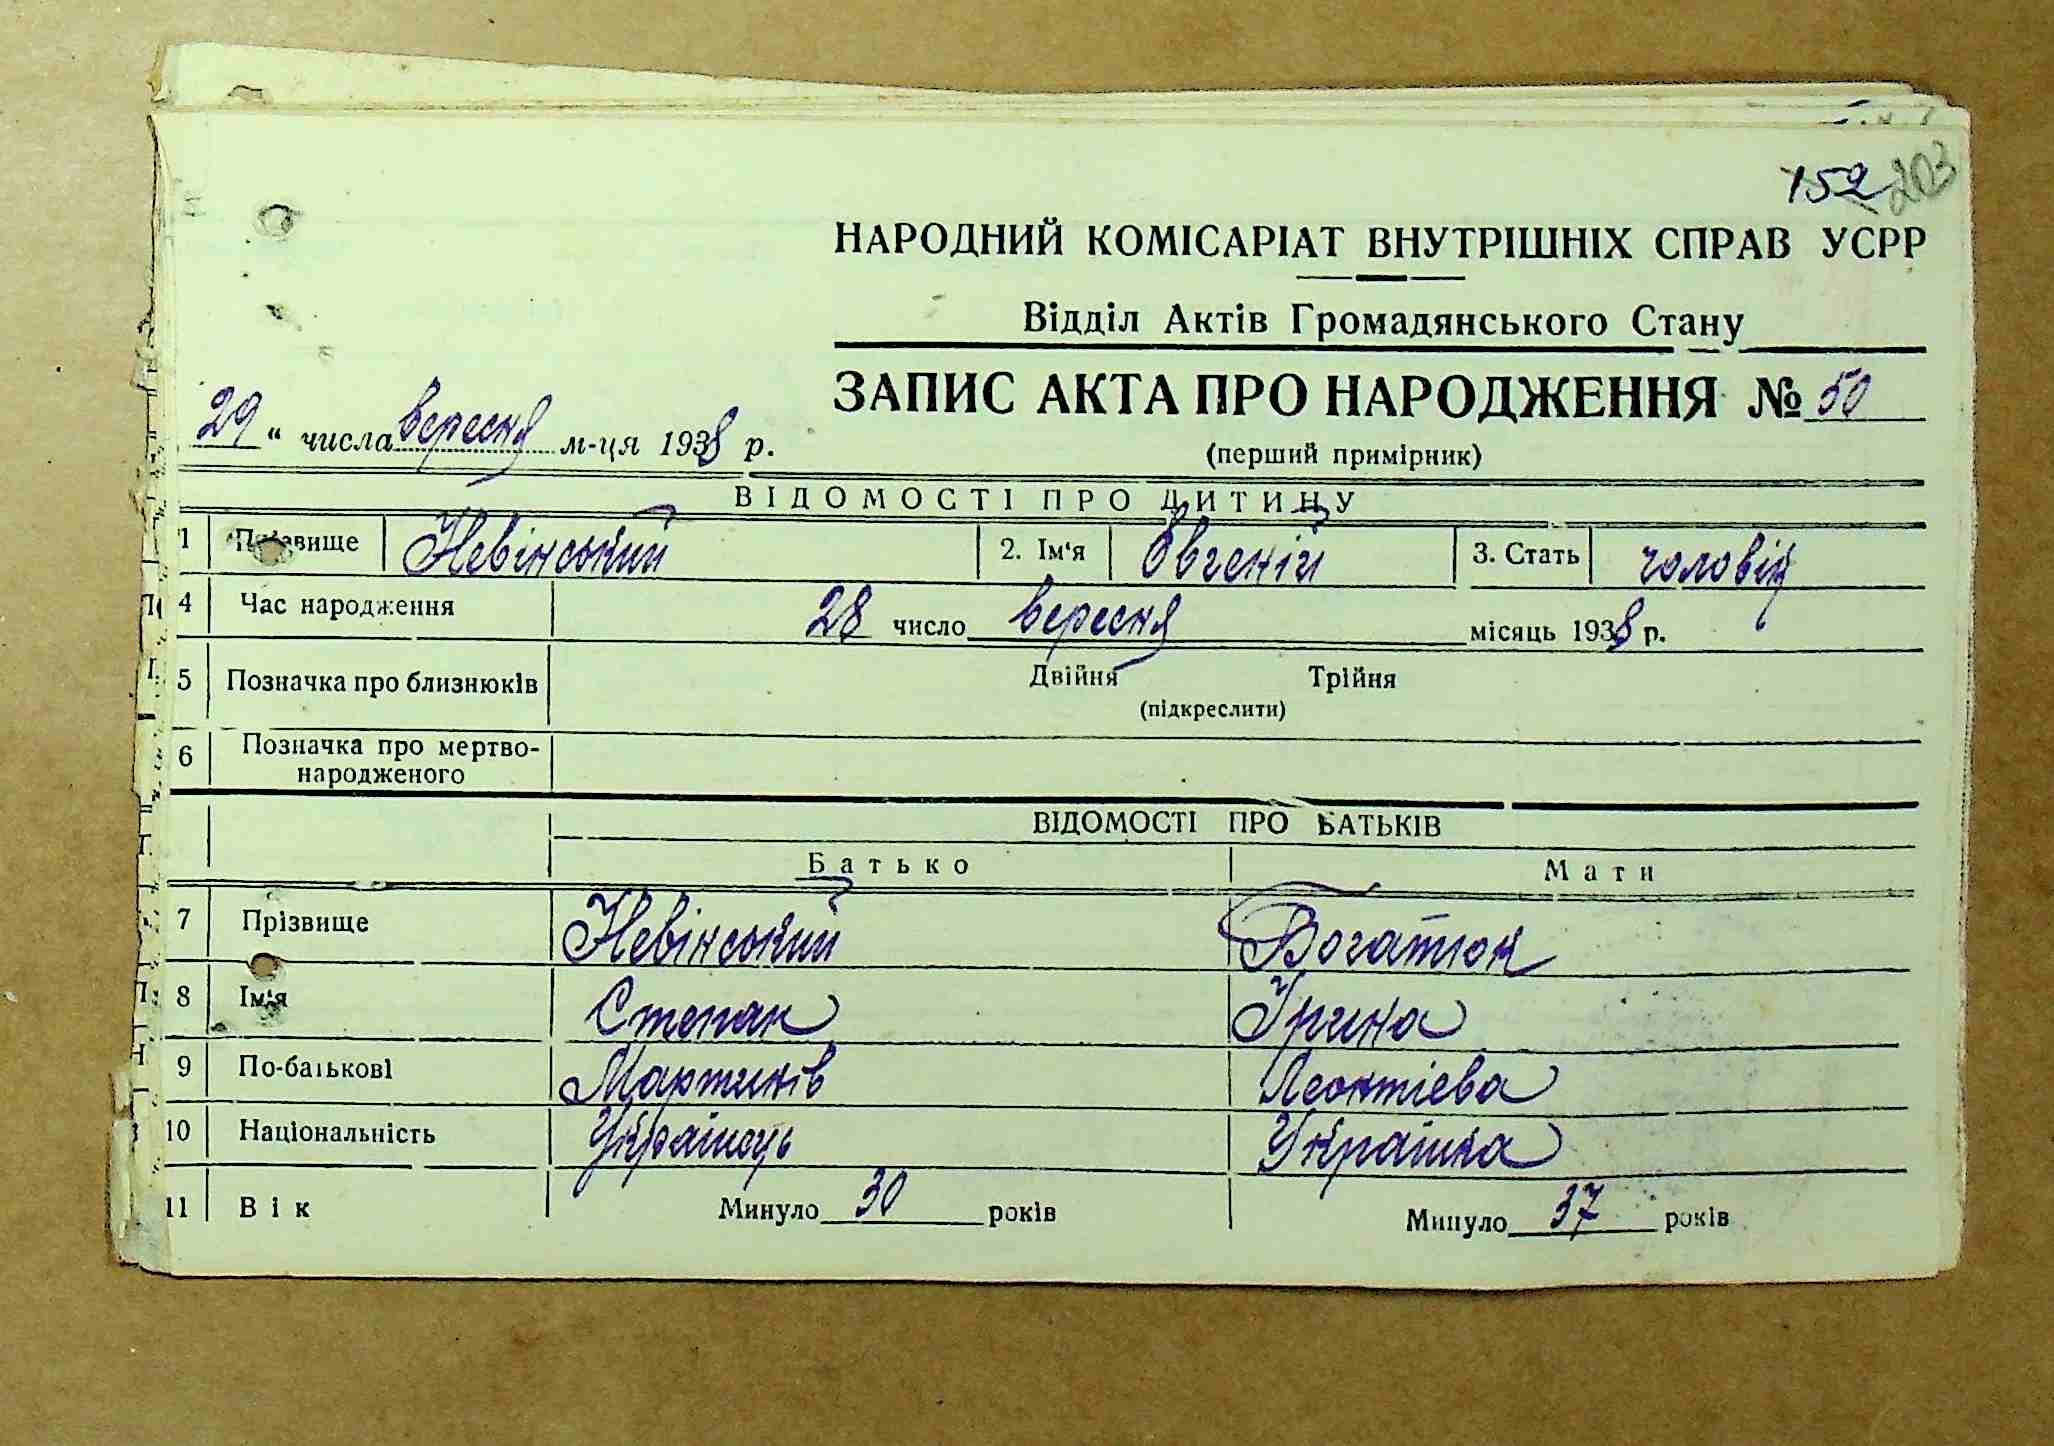 152 203
НАРОДНИЙ КОМІСАРІАТ ВНУТРІШНІХ СПРАВ УСРР
Відділ Актів Громадянського Стану
ЗАПИС АКТА ПРО НАРОДЖЕННЯ № 50
29 " числа вересня м-ця 1938 р.
(перший примірник)
ВІДОМОСТІ ПРО ДИТИНУ
1 Прізвище Невінський 2. Ім'я Євгеній 3. Стать чоловіч
4 Час народження 28 число вересня місяць 1938 р.
5 Позначка про близнюків Двійня Трійня
(підкреслити)
6 Позначка про мертво-
народженого
ВІДОМОСТІ ПРО БАТЬКІВ
Батько Мати
7 Прізвище Невінський Богатюк
8 Ім'я Степан Ірина
9 По-батькові Мартинів Леонтієва
10 Національність Українець Українка
11 Вік Минуло 30 років Минуло 37 років